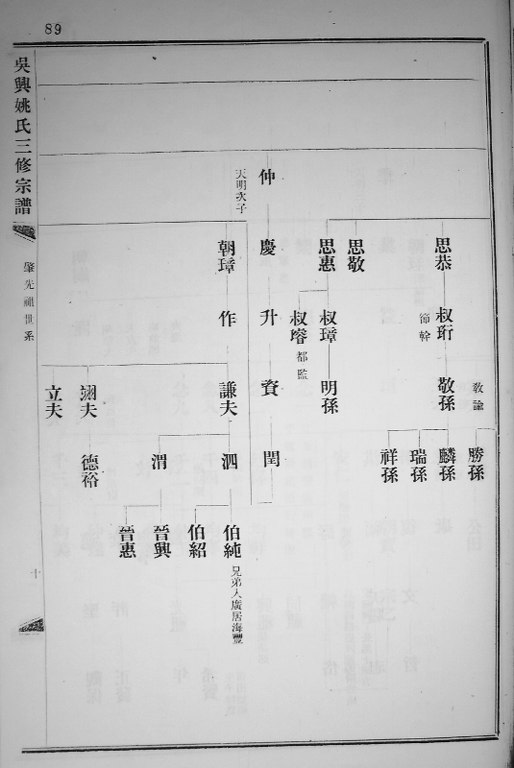 89
吳興姚氏三修宗譜
肇先祖世系
十
教諭
勝孫
思恭
叔珩
節幹
敬孫
麟孫
瑞孫
祥孫
思敬
思惠
叔璋
明孫
叔瑢
都監
仲
天明次子
慶
升
資
閏
朝璋
作
謙夫
泗
伯純
兄弟入廣居海豐
伯紹
渭
晉興
晉惠
翊夫
德裕
立夫